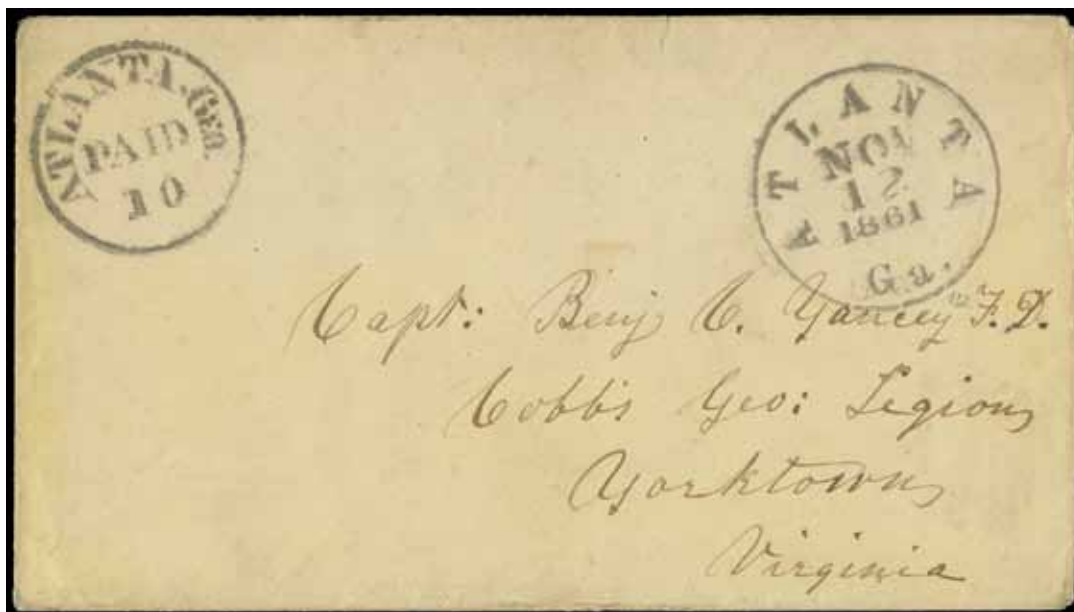 ATLANTA. GEO.
PAID
10
ATLANTA
NOV
12
1861
Ga.
Capt: Benj C. Yancey F. D.
Cobb's Geo: Legion
Yorktown
Virginia